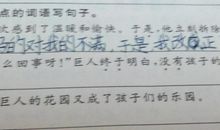 点的词语写句子。
次感到了温暖和愉快。于是，他立刻拆除
的对我的不满，于是，我改正
么回事呀！”巨人终于明白，没有孩子的
巨人的花园又成了孩子们的乐园。